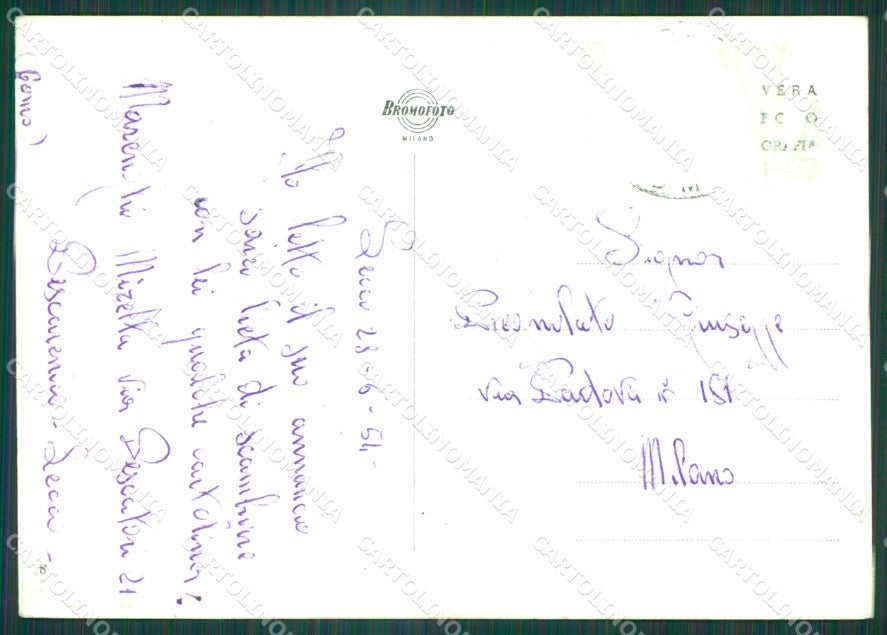 BROMOFOTO
MILANO
VERA
FOTOGRAFIA
Lecco 28-6-54
Ho letto il suo annuncio
sarei lieta di scambiare
con lei qualche cartolina?
Marenghi Mizetta via Pescatori 21
Pescarenico - Lecco -
(Como)
Signor
Giuseppe
via Padova n° 151
Milano
CARTOLINOMANIA